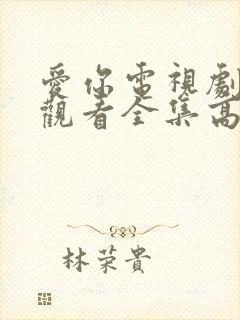 愛你電視劇
觀看全集高
林荣貴